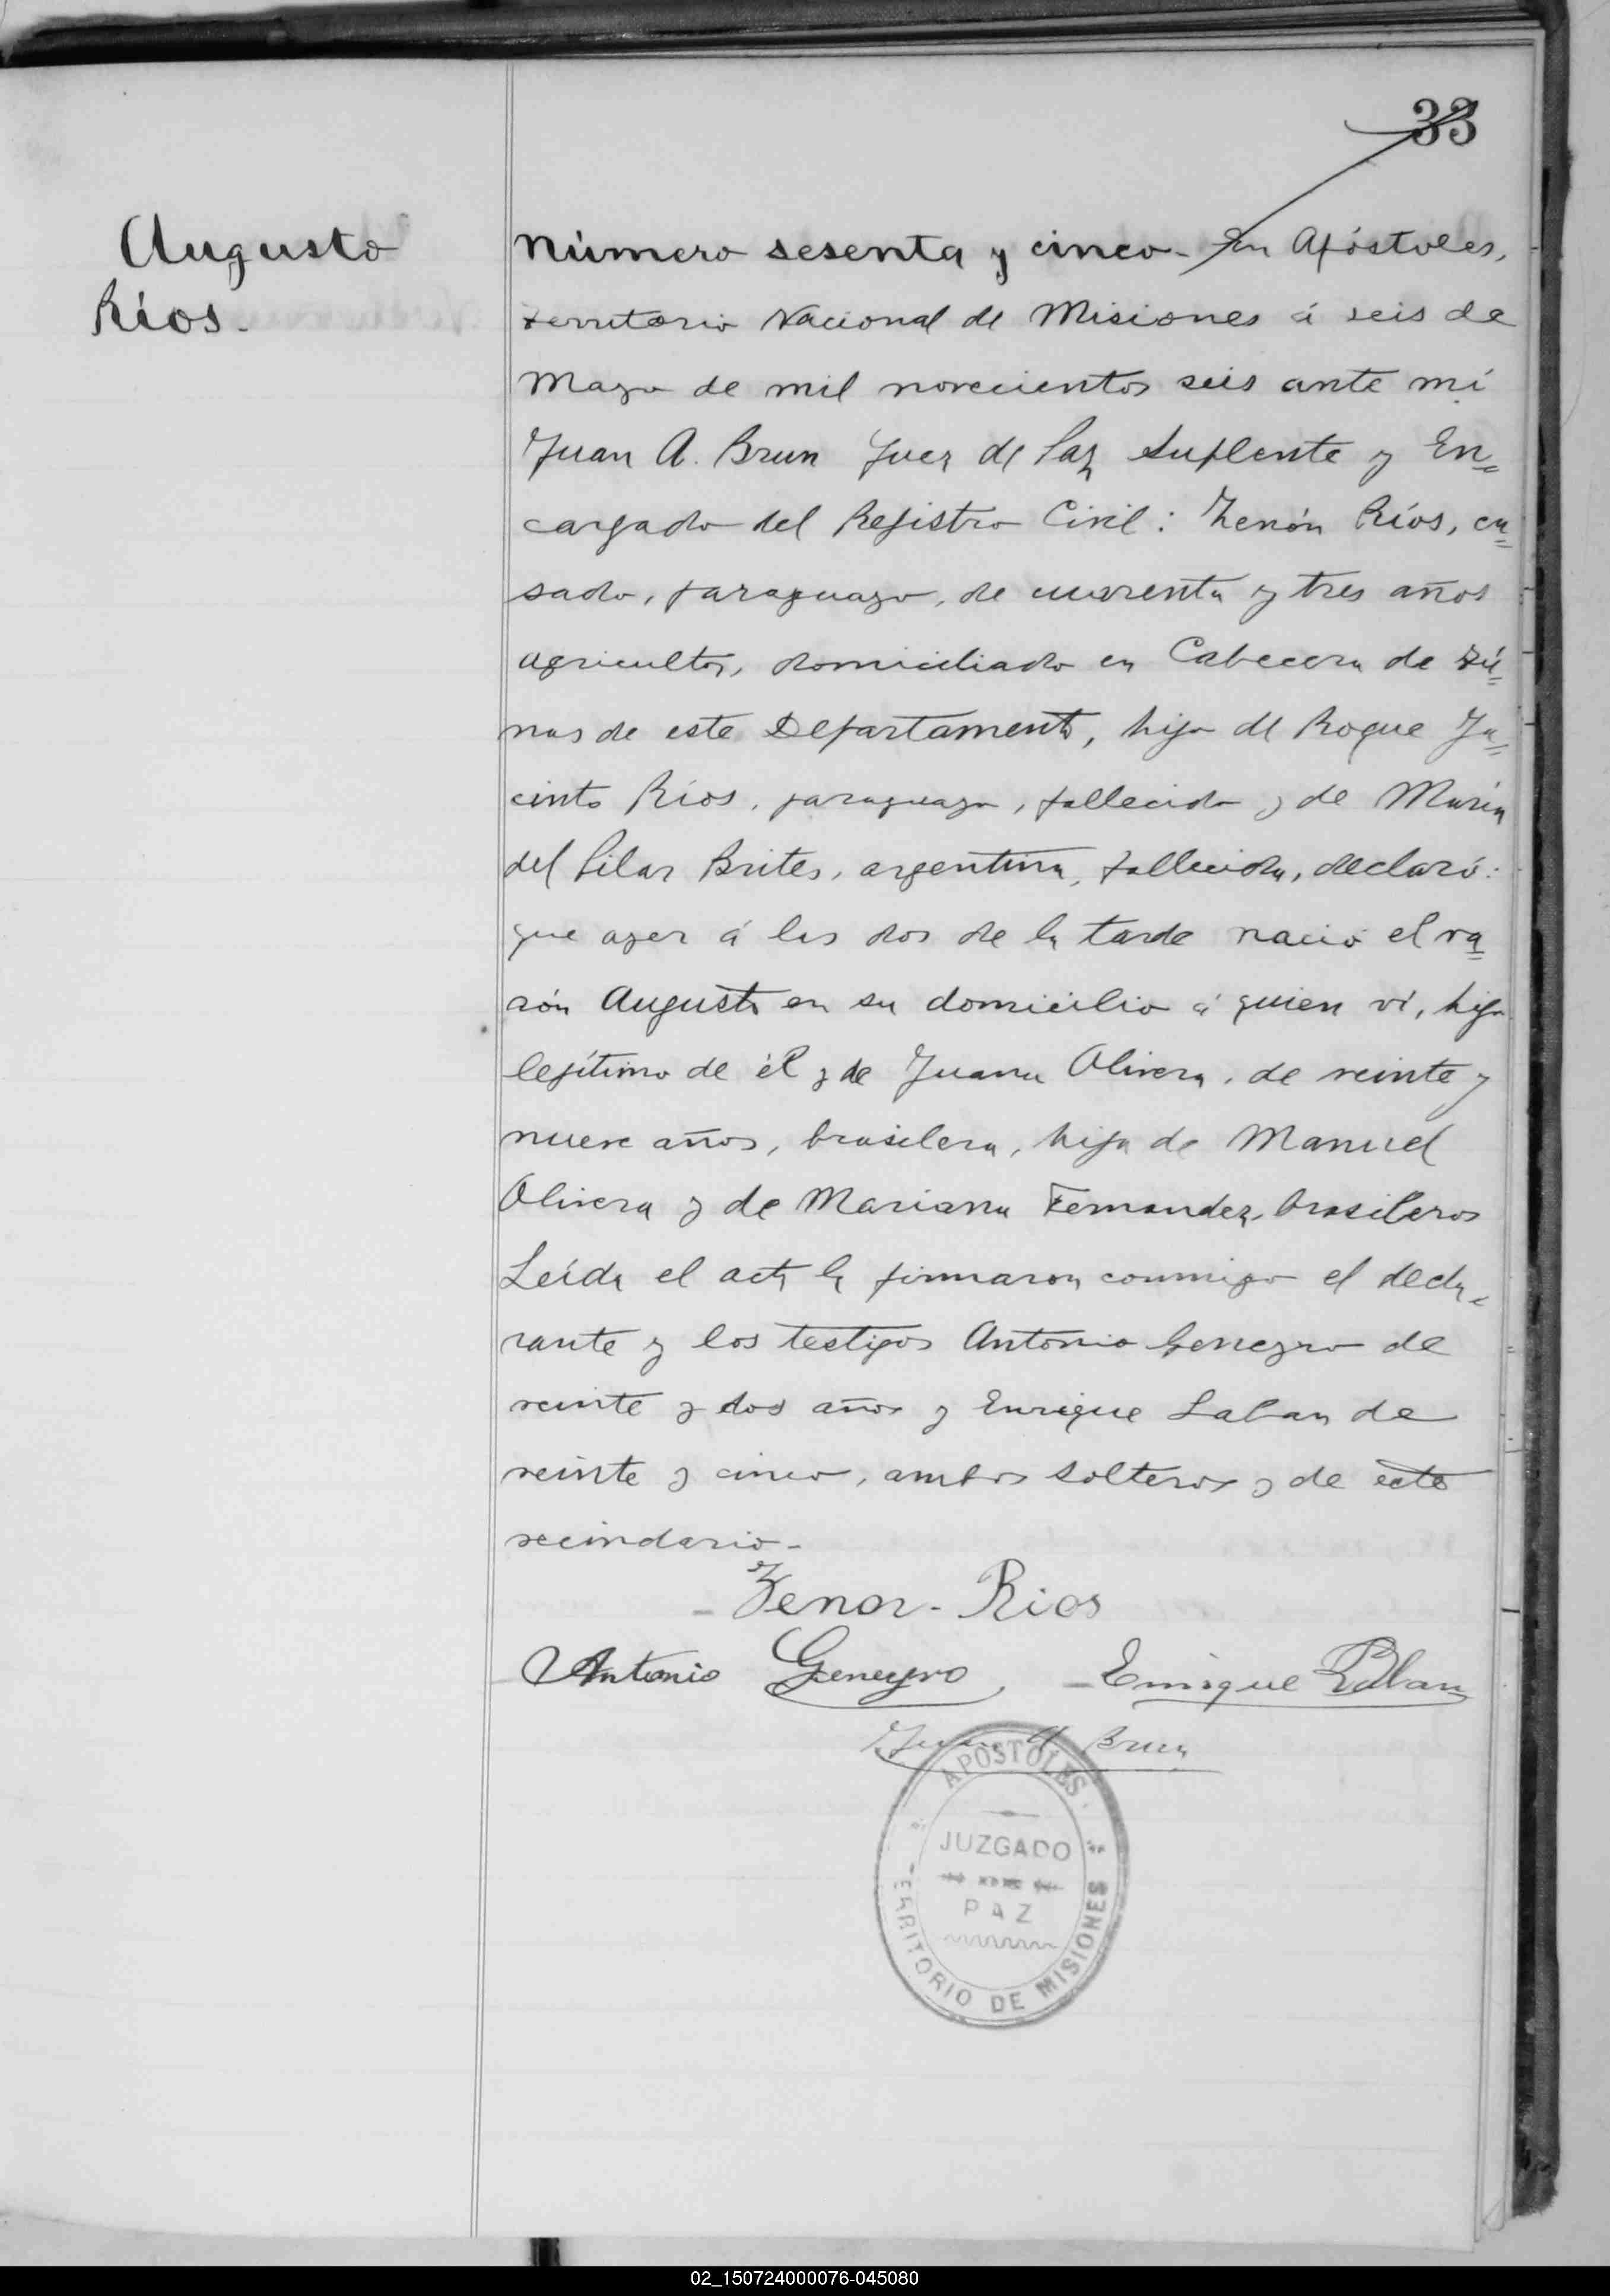 33
Augusto
Ríos.
Número sesenta y cinco - En Apóstoles,
Territorio Nacional de Misiones á seis de
Mayo de mil novecientos seis ante mí
Juan A. Brun Juez de Paz Suplente y En=
cargado del Registro Civil: Zenón Ríos, ca=
sado, paraguayo, de cuarenta y tres años
agricultor, domiciliado en Cabecera de Tú=
nas de este Departamento, hijo de Roque Ja=
cinto Ríos, paraguayo, fallecido y de María
del Pilar Brites, argentina, fallecida, declaró:
que ayer á las dos de la tarde nació el va=
rón Augusto en su domicilio á quien ví, hijo
legítimo de él y de Juana Olivera, de veinte y
nueve años, brasilera, hija de Manuel
Olivera y de Mariana Fernandez, brasileros
Leída el acta la firmaron conmigo el decla=
rante y los testigos Antonio Geneyro de
veinte y dos años y Enrique Laban de
veinte y cinco, ambos solteros y de este
vecindario -
- Zenon - Rios
Antonio Geneyro, - Enrique Laban
Juan A Brun
APOSTOLES
JUZGADO
PAZ
TERRITORIO DE MISIONES
02_150724000076-045080